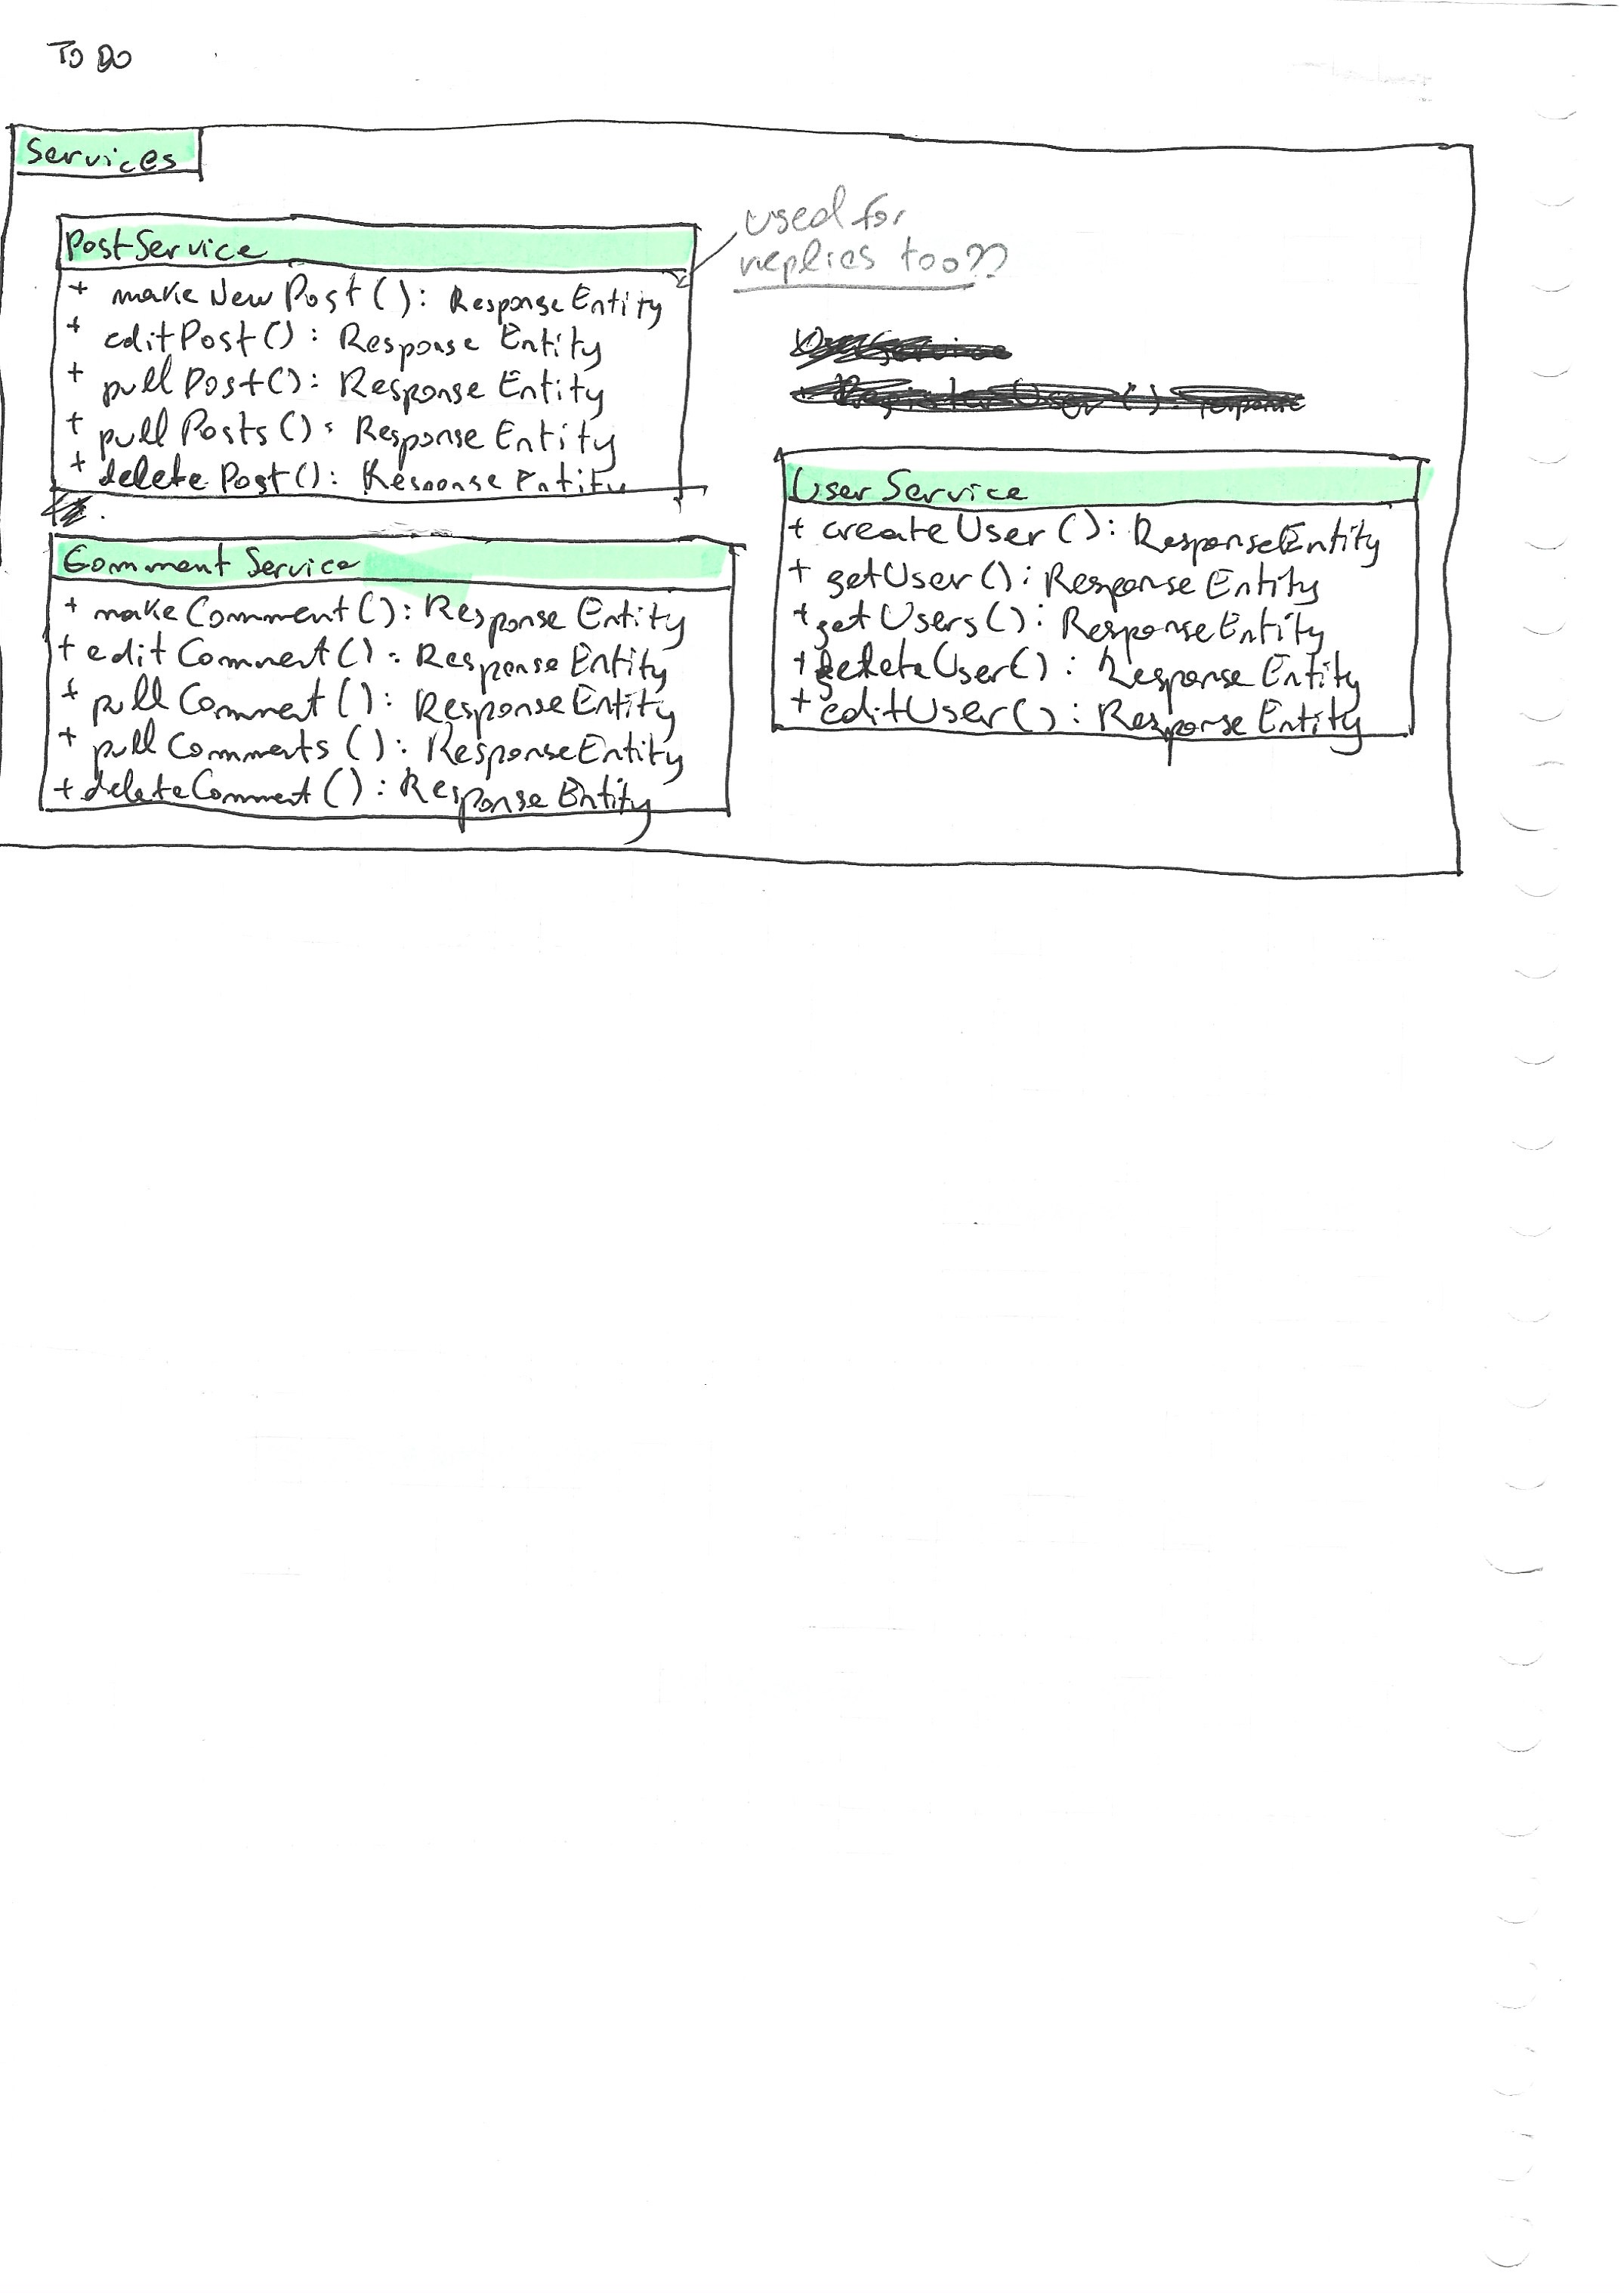 TO DO
Services
PostService
+ makeNewPost(): ResponseEntity
+ editPost(): Response Entity
+ pullPost(): Response Entity
+ pullPosts(): Response Entity
+ deletePost(): Response Entity
used for
replies too??
Comment Service
+ makeComment(): Response Entity
+ editComment(): Response Entity
+ pullComment(): ResponseEntity
+ pullComments(): ResponseEntity
+ deleteComment(): Response Entity
User Service
+ createUser(): ResponseEntity
+ getUser(): Response Entity
+ getUsers(): ResponseEntity
+ deleteUser(): Response Entity
+ editUser(): Response Entity